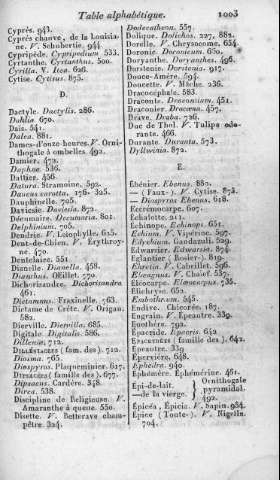 Table alphabétique. 1003
Cyprès. 943.
Cyprès chauve, de la Louisiane. V. Schubertie. 944
Cypripède. Cypripedium 533.
Cyrtanthe. Cyrtanthus. 500
Cyrilla. V. Itea. 626.
Cytise. Cytisus. 875.
D.
Dactyle. Dactylis. 286.
Dahlia. 670.
Dais. 541.
Dalea. 881.
Dames-d'onze-heures. V. Ornithogale à ombelles. 492.
Damier. 472.
Daphne. 536.
Dattier. 456.
Datura. Stramoine. 592.
Daucus carotta. 176. 325.
Dauphinelle. 705.
Daviesia. Daviesia. 872.
Décumaire. Decumaria. 801.
Delphinium. 705.
Dendrie. V. Leiophylles 625.
Dent-de-Chien. V. Erythrone. 470.
Dentelaire. 551.
Dianelle. Dianella. 458.
Dianthus. Œillet. 770.
Dichorisandre. Dichorisandra 461.
Dictamnus. Fraxinelle. 763.
Dictame de Crète. V. Origan. 582.
Dierville. Diervilla. 685.
Digitale. Digitalis. 586.
Dillenie. 712.
Dilléniacées (fam. des). 712.
Diosma. 765.
Diospyros. Plaqueminier. 617.
Dipsacées (famille des). 677.
Dipsacus. Cardère. 348.
Dirca. 538.
Discipline de Religieuse. V. Amaranthe à queue. 550.
Disette. V. Betterave champêtre. 324.
Dodecatheon. 557.
Dolique. Dolichos. 227. 882.
Dorelle. V. Chrysocome. 654.
Doronic. Doronicum. 650.
Doryanthe. Doryanthes. 496.
Dorstenie. Dorstenia. 917.
Douce-Amère. 594
Doucette. V. Mâche. 236.
Dracocéphale. 583.
Draconte. Dracontium. 451.
Draconier. Dracæna. 457.
Drave. Draba. 726.
Duc de Thol. V. Tulipe odorante. 466.
Durante. Duranta. 573.
Dyllwinia. 872.
E.
Ebénier. Ebenus. 882.
— (Faux-). V. Cytise. 875.
— Diospyros Ebenus. 618.
Eccremocarpe. 607.
Echalotte. 211.
Echinope. Echinops. 651.
Echium. V. Vipérine. 597.
Edychium. Gandazuli. 529.
Edvarsier. Edwarsia. 874
Eglantier (Rosier-). 819.
Ehretia. V. Cabrillet. 596
Elæagnus. V. Chalef. 537.
Eléocarpe. Elæocarpus. 735.
Elichryse. 652.
Embothrium. 545.
Endive. Chicorée. 187.
Engrain. V. Épeautre. 339.
Enothère. 792.
Epacride. Epacris. 642